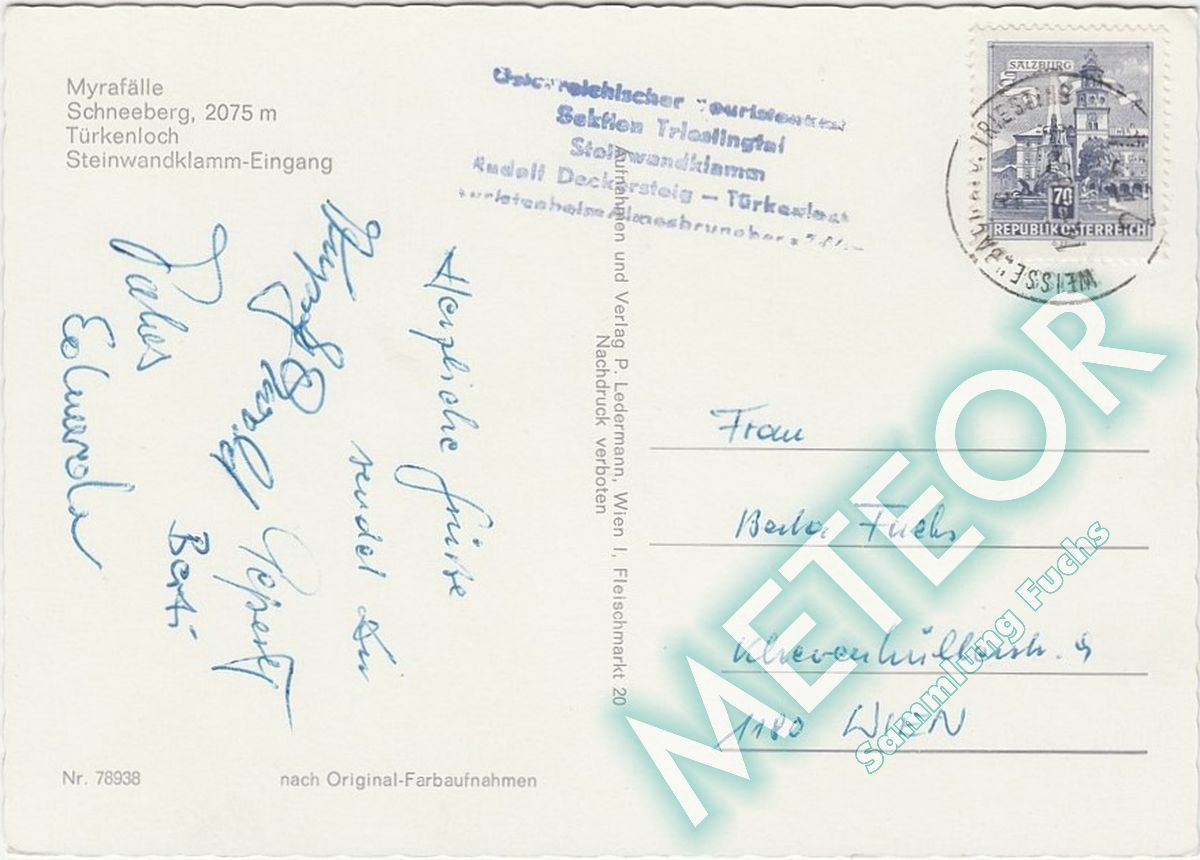 Myrafälle
Schneeberg, 2075 m
Türkenloch
Steinwandklamm-Eingang
Österreichischer Touristenklub
Sektion Triestingtal
Steinwandklamm
Rudolf Deckersteig — Türkenloch
SALZBURG
70
REPUBLIK ÖSTERREICH
Herzliche Grüße
sendet Dir
Berti
Edmund
Aufnahmen und Verlag P. Ledermann, Wien I, Fleischmarkt 20
Nachdruck verboten
Frau
Berta Fuchs
Khevenhüllerstr. 9
1180 WIEN
METEOR
Sammlung Fuchs
Nr. 78938
nach Original-Farbaufnahmen